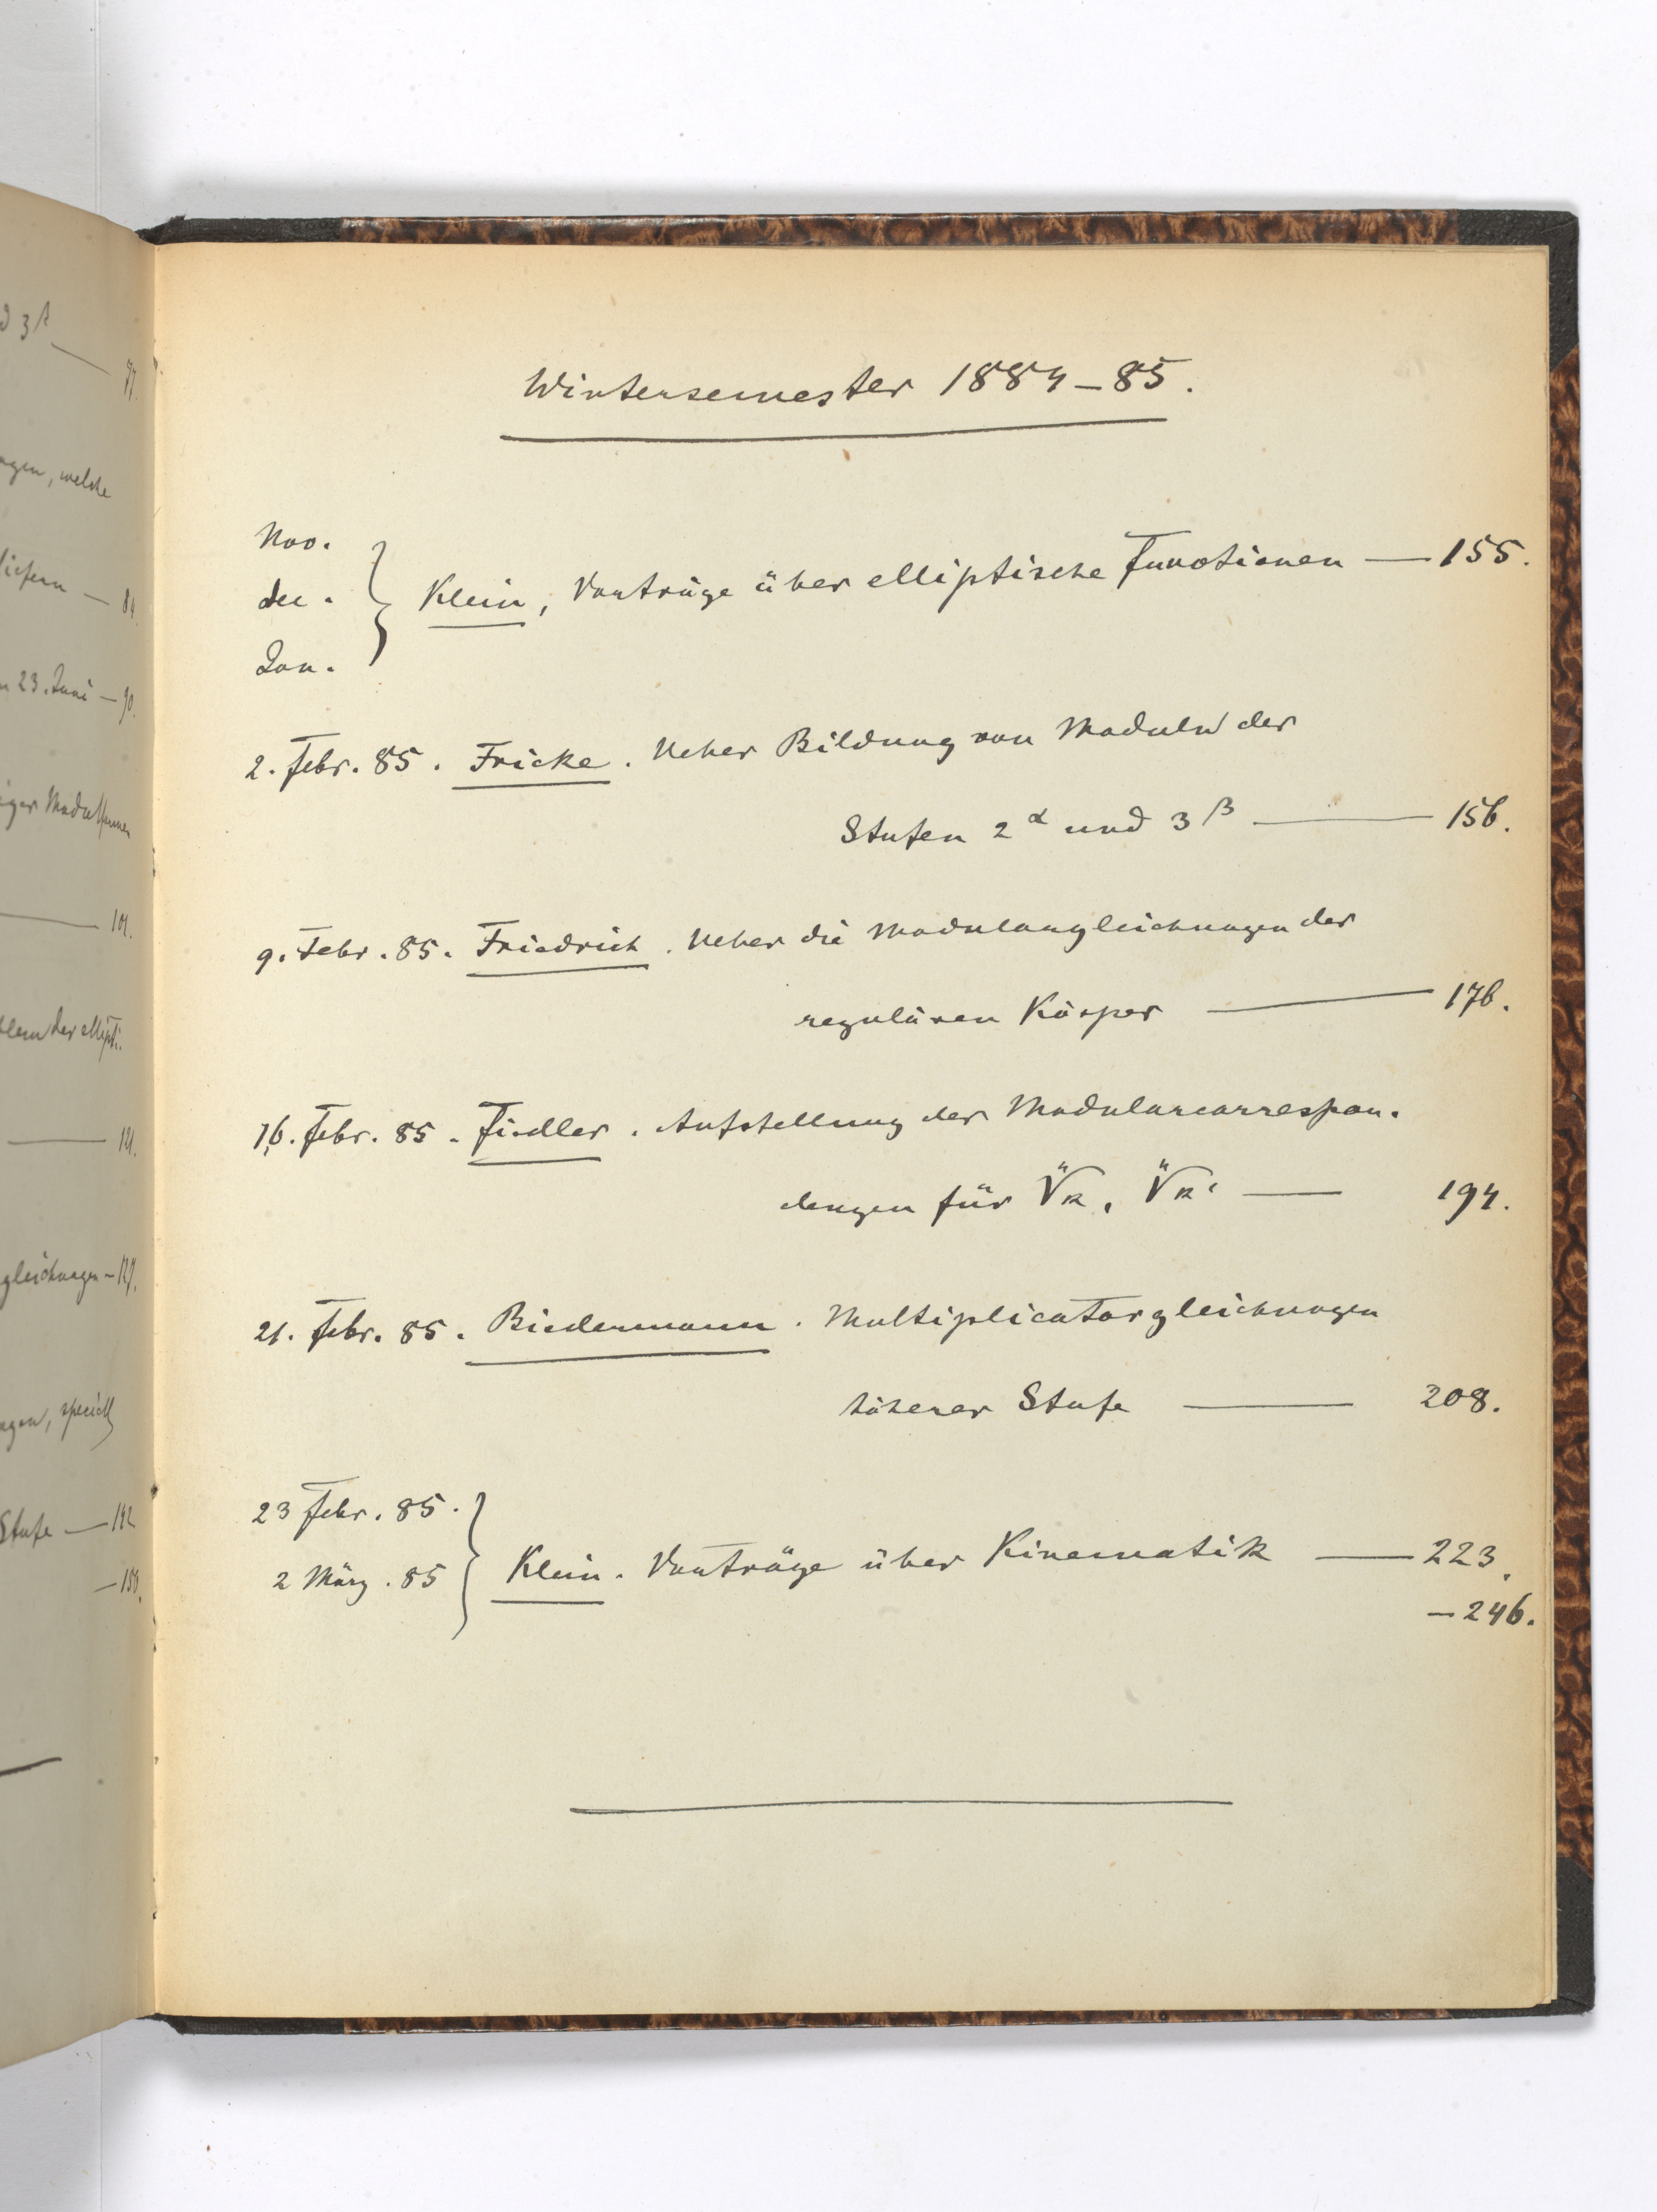 d 3β
— 77.
ngen, welche
liefern — 84.
23. Juni — 90.
iger Modulformen
— 101.
blem der ellipt.
— 121.
gleichungen — 127.
ngen, speciell
Stufe — 142
— 150.
Wintersemester 1884–85.
Nov.
Dec.
Jan.
Klein, Vorträge über elliptische Functionen — 155.
2. Febr. 85. Fricke. Ueber Bildung von Moduln der
Stufen 2^α und 3^β — 156.
9. Febr. 85. Friedrich. Ueber die Modulargleichungen der
regulären Körper — 176.
16. Febr. 85. Fiedler. Aufstellung der Modularcorrespon-
denzen für ⁴√k, ⁴√k' — 194.
21. Febr. 85. Biedermann. Multiplicatorgleichungen
höherer Stufe — 208.
23 Febr. 85.
2 März. 85
Klein. Vorträge über Kinematik — 223.
— 246.